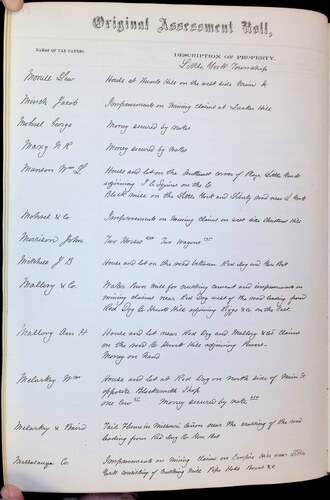 Original Assessment Roll,
NAMES OF TAX PAYERS
DESCRIPTION OF PROPERTY.
Little York Township
House at Hunts Hill on the west side Main St
Minich Jacob Improvements on Mining claims at Quaker Hill
George Money secured by notes
Maxy Money secured by notes
Manson Wm House and lot on the Southwest corner of Race Little York
adjoining on the E
mill on the Little York and road near L York
& Co Improvements on Mining claims on west side Christmas Hill
Morrison John Two Horses Two Wagons
Mitchell J B House and lot on the road between Red dog and You Bet
Mallory & Co. Water Power mill for crushing cement and improvements on
mining claims near Red Dog west of the road leading from
Red Dog to Hunts Hill adjoining & Co on the East
Mallory Am H House and lot near Red Dog and Mallory & Co's claims
on the road to Hunts Hill adjoining
Money on hand
Melarkey Wm House and lot at Red Dog on north side of Main St
opposite Blacksmith Shop
one cow Money secured by note
Melarkey & Baird Tail Flume in Missouri Cañon near the crossing of the road
leading from Red Dog to You Bet
Co. Improvements on Mining claims on Empire near Little
York consisting of Crushing mill Pipe Hose &c